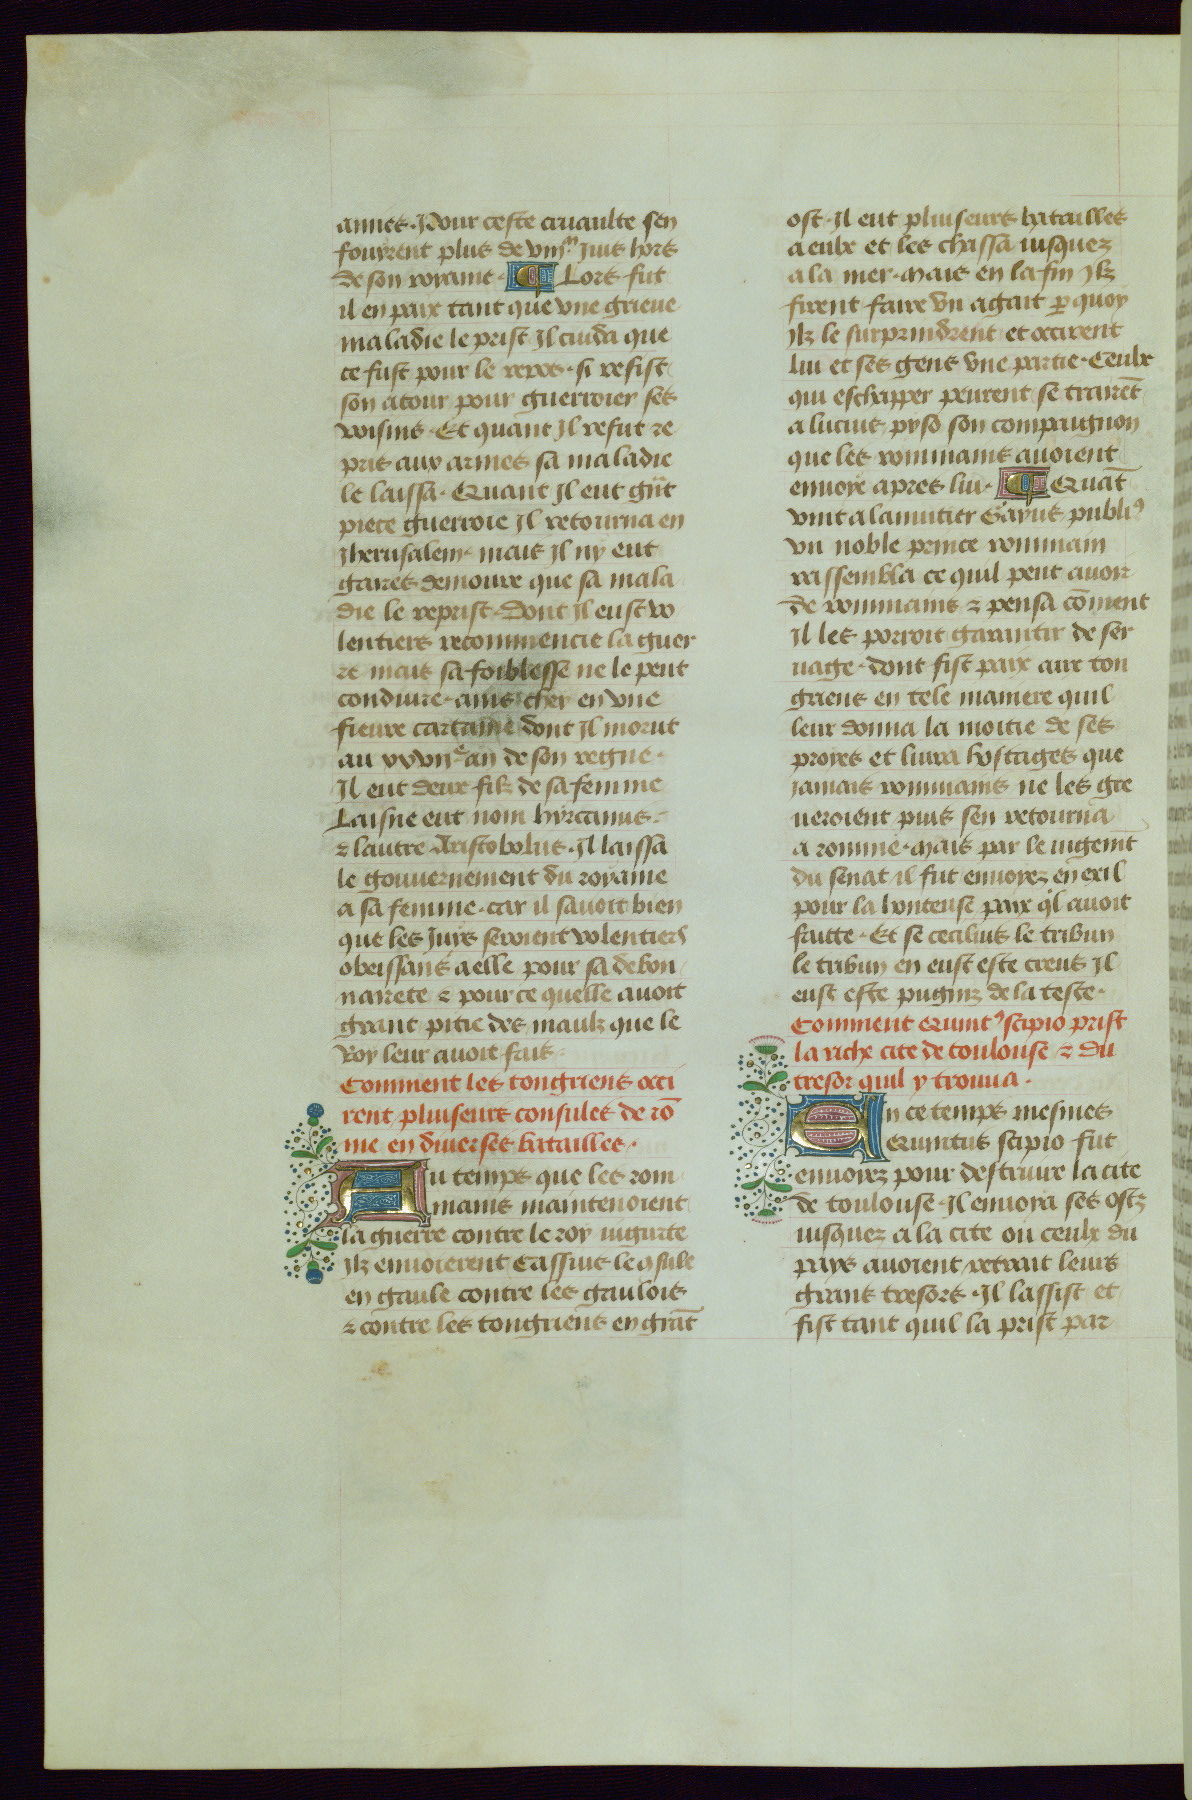 annes. Pour ceste cruaulte sen
fouyrent plus de viijᵐ Juis hors
de son royame. Lors fut
il en paix tant que vne grieue
maladie le prist Il cuida que
ce fust pour le repos. si refist
son atour pour guerroier ses
voisins. Et quant Il refut re
pris aux armes sa maladie
le laissa. Quant Il eut gñt
piece guerroie Il retourna en
Jherusalem. mais Il ny eut
gaires demoure que sa mala
die le reprist. Dont Il eust vo
lentiers recommencie la guer
re mais sa foiblesse ne le peut
conduire. ains chey en vne
fieure cartaine dont Il morut
au xxvijᵉ an de son regne.
Il eut deux filz de sa femme
Laisne eut nom hyrcanus.
& lautre Aristobolus. Il laissa
le gouuernement du royame
a sa femme. car il sauoit bien
que les Juys seroient volentiers
obeissans a elle pour sa debon
nairete & pour ce quelle auoit
grant pitie des maulz que le
Roy leur auoit fait.
Comment les tongriens occi
rent pluiseurs consules de rō
me en diuerses batailles.
Au temps que les rom
mains maintenoient
la guerre contre le roy iugurte
Ilz enuoierent Cassius le ꝯsule
en gaule contre les gaulois
& contre les tongriens en grāt
ost. Il eut pluiseurs batailles
a eulx et les chassa iusquez
a la mer. Mais en la fin Ilz
firent faire vn agait ꝑ quoy
Ilz le surprindrent et occirent
lui et ses gens vne partie. Ceulx
qui eschapper peurent se trairēt
a lucius pyso son compaignon
que les rommains auoient
enuoye apres lui. Quāt
vint a lanuitier Gayus publiꝰ
vn noble prince rommain
rassembla ce quil peut auoir
de rommains & pensa cōment
Il les porroit garantir de ser
uage. dont fist paix aux ton
griens en tele maniere quil
leur donna la moitie de ses
proyes et liura hostages que
iamais rommains ne les gre
ueroient puis sen retourna
a romme. Mais par le iugemt̄
du senat il fut enuoyez en exil
pour la honteuse paix q̉l auoit
faitte. Et se cecilius le tribun
le tribun en eust este creus Il
eust este pugniz de la teste.
Comment Quintꝰ scipio prist
la riche cite de toulouse & du
tresor quil y trouua.
En ce temps mesmes
Quintus scipio fut
enuoyez pour destruire la cite
de toulouse. Il enuoya ses ostz
iusquez a la cite ou ceulx du
pays auoient retrait leurs
grans tresors. Il lassist et
fist tant quil la prist par